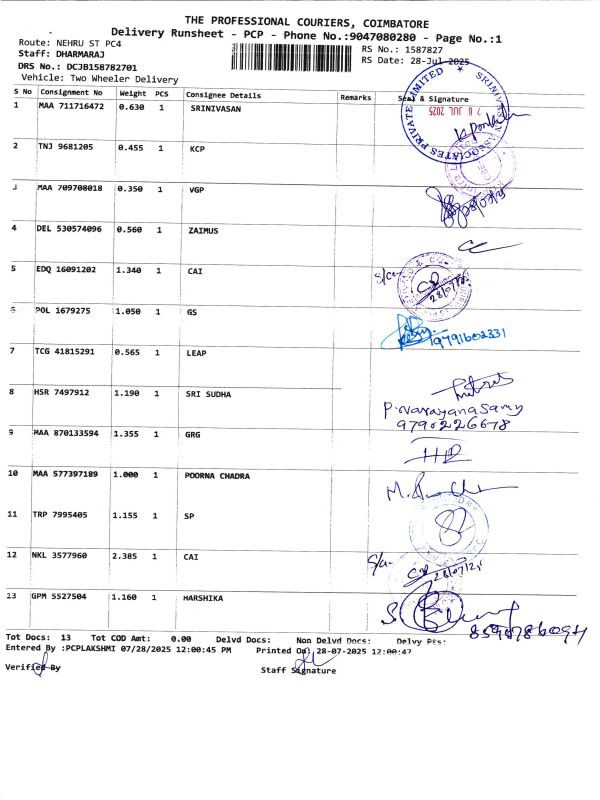 THE PROFESSIONAL COURIERS, COIMBATORE
Delivery Runsheet - PCP - Phone No.:9047080280 - Page No.:1
Route: NEHRU ST PC4
RS No.: 1587827
Staff: DHARMARAJ
RS Date: 28-Jul-2025
DRS No.: DCJB158782701
Vehicle: Two Wheeler Delivery
S No Consignment No Weight PCS Consignee Details Remarks Seal & Signature
1 MAA 711716472 0.630 1 SRINIVASAN
SRINIVASAN ASSOCIATES PRIVATE LIMITED
28 JUL 2025
2 TNJ 9681205 0.455 1 KCP
3 MAA 709708018 0.350 1 VGP
4 DEL 530574096 0.560 1 ZAIMUS
5 EDQ 16091202 1.340 1 CAI
28/07/25
6 POL 1679275 1.050 1 GS
9791602331
7 TCG 41815291 0.565 1 LEAP
8 HSR 7497912 1.190 1 SRI SUDHA
P. Narayanasamy
9790226678
9 MAA 870133594 1.355 1 GRG
10 MAA 577397189 1.000 1 POORNA CHADRA
11 TRP 7995405 1.155 1 SP
12 NKL 3577960 2.385 1 CAI
28/07/25
13 GPM 5527504 1.160 1 HARSHIKA
Tot Docs: 13 Tot COD Amt: 0.00 Delvd Docs: Non Delvd Docs: Delvy Pts:
Entered By :PCPLAKSHMI 07/28/2025 12:00:45 PM Printed On: 28-07-2025 12:00:47
Verified By
Staff Signature